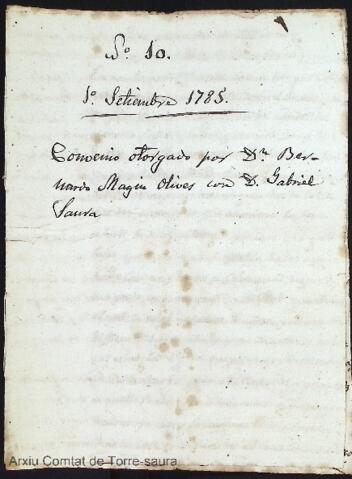 Nº 10.
1º Setiembre 1785.
Convenio otorgado por Dn. Ber-
nardo Magin Olives con D. Gabriel
Saura
Arxiu Comtat de Torre-saura